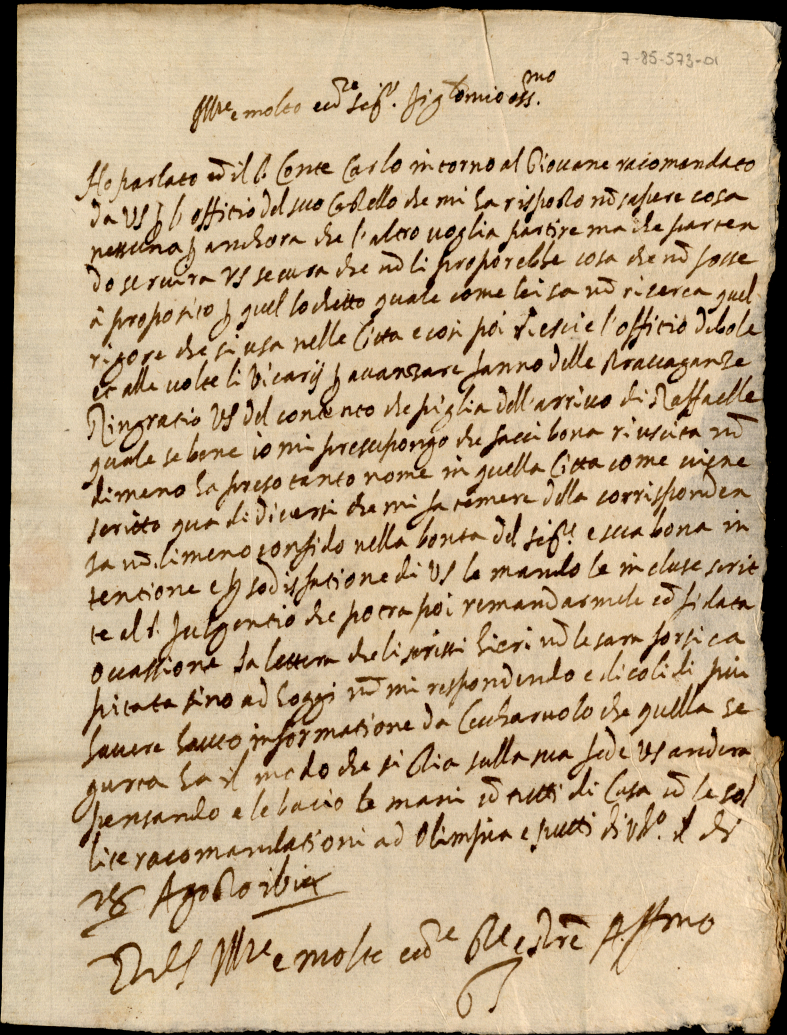 7-85-573-01
Ill.re e molto ecc.re Sig.r Sig.r mio oss.mo
Ho parlato cõ il s. Conte Carlo intorno al Giovane racomandato
da VS p l officio del suo Castello che mi ha risposto nõ sapere cosa
nessuna p anchora che l'altro voglia partire ma che parten
do servira VS secura che nõ li proporebbe cosa che nõ fosse
à proposito p quel lochetto quale come lei sa nõ ricerca quel
rigore che si usa nelle Citta e cosi poi riesci l'officio debole
et alle volte li Vicarij p avanzare fanno delle stravaganze
Ringratio VS del contento che piglia dell'arrivo di Raffaelle
quale se bene io mi presupongo che facci bona riuscita nõ
dimeno ha preso tanto nome in quella Citta come viene
scritto qua di diversi che mi fa temere della corrisponden
za nõ dimeno confido nella bonta del sig.r e sua bona in
tentione e p sodisfatione di VS le mando le incluse scrit
te al s. fulgentio che potra poi remandarmele cõ fidata
occassione la lettera che li scrissi hieri nõ le sara forsi ca
pitata sino ad hoggi nõ mi respondendo e dicoli di piu
havere hauto informatione da Cecharuolo che quella se
gurta ha il modo che si stia sulla sua fede VS andera
pensando e le bacio le mani cõ tutti di Casa cõ le sol
lite racomandationi ad Olimpia e putti di li
28 Agosto
Di VS Ill.re e molte ecc.re